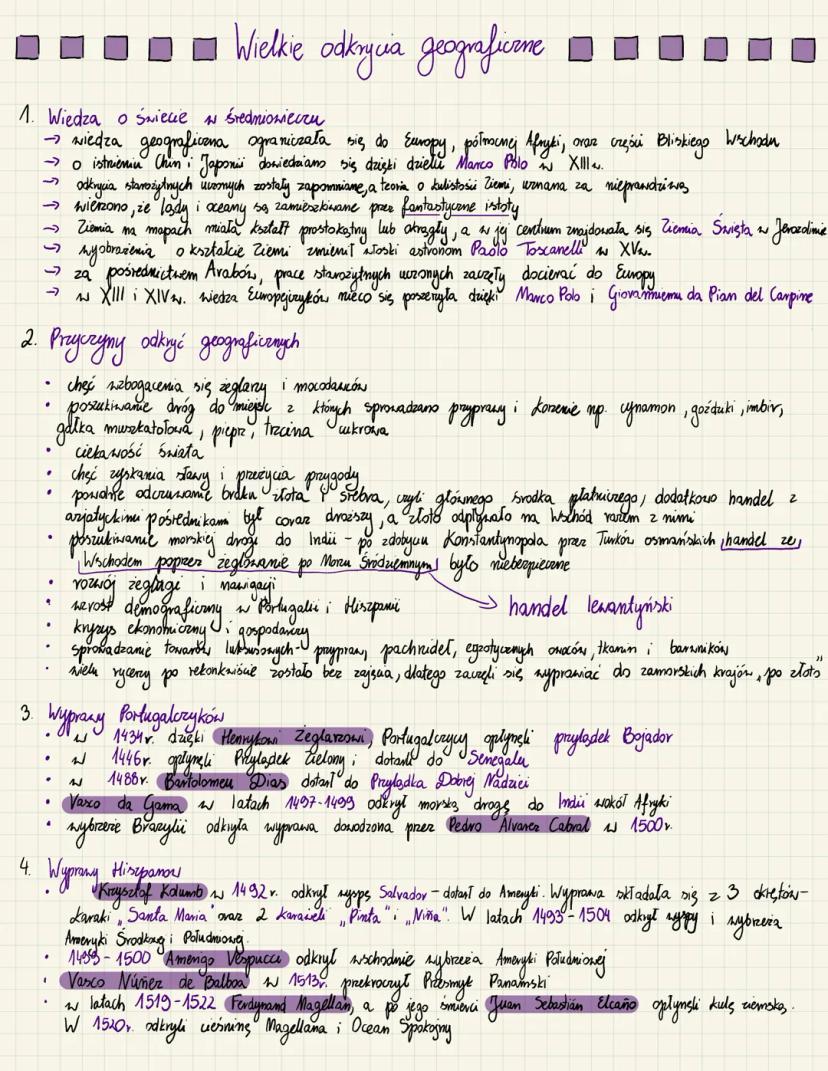 Wielkie odkrycia geograficzne
1. Wiedza o świecie w średniowieczu
→ wiedza geograficzna ograniczała się do Europy, północnej Afryki, oraz części Bliskiego Wschodu
→ o istnieniu Chin i Japonii dowiedziano się dzięki dziełu Marco Polo w XIIIw.
→ odkrycia starożytnych uczonych zostały zapomniane, a teoria o kulistości Ziemi, uznana za nieprawdziwą
→ wierzono, że lądy i oceany są zamieszkiwane przez fantastyczne istoty
→ Ziemia na mapach miała kształt prostokątny lub okrągły, a w jej centrum znajdowała się Ziemia Święta w Jerozolimie
→ wyobrażenia o kształcie Ziemi zmienił włoski astronom Paolo Toscanelli w XVw.
→ za pośrednictwem Arabów, prace starożytnych uczonych zaczęły docierać do Europy
→ w XIII i XIVw. wiedza Europejczyków nieco się poszerzyła dzięki Marco Polo i Giovanniemu da Pian del Carpine
2. Przyczyny odkryć geograficznych
• chęć wzbogacenia się żeglarzy i mocodawców
• poszukiwanie dróg do miejsc z których sprowadzano przyprawy i korzenie np. cynamon, goździki, imbir,
gałka muszkatołowa, pieprz, trzcina cukrowa
• ciekawość świata
• chęć zyskania sławy i przeżycia przygody
• poważne odczuwanie braku złota i srebra, czyli głównego środka płatniczego, dodatkowo handel z
azjatyckimi pośrednikami był coraz droższy, a złoto odpływało na Wschód razem z nimi
• poszukiwanie morskiej drogi do Indii - po zdobyciu Konstantynopola przez Turków osmańskich handel ze
Wschodem poprzez żeglowanie po Morzu Śródziemnym było niebezpieczne
• rozwój żeglugi i nawigacji
• wzrost demograficzny w Portugalii i Hiszpanii
handel lewantyński
• kryzys ekonomiczny i gospodarczy
• sprowadzanie towarów luksusowych - przypraw, pachnideł, egzotycznych owoców, tkanin i barwników
• wielu rycerzy po rekonkwiście zostało bez zajęcia, dlatego zaczęli się wyprawiać do zamorskich krajów „po złoto"
3. Wyprawy Portugalczyków
• w 1434r. dzięki Henrykowi Żeglarzowi, Portugalczycy opłynęli przylądek Bojador
• w 1446r. opłynęli Przylądek Zielony i dotarli do Senegalu
• w 1488r. Bartolomeu Dias dotarł do Przylądka Dobrej Nadziei
• Vasco da Gama w latach 1497-1499 odkrył morską drogę do Indii wokół Afryki
• wybrzeże Brazylii odkryła wyprawa dowodzona przez Pedro Alvarez Cabral w 1500r.
4. Wyprawy Hiszpanów
• Krzysztof Kolumb w 1492r. odkrył wyspę Salvador - dotarł do Ameryki. Wyprawa składała się z 3 okrętów -
karaki „Santa Maria" oraz 2 karaweli „Pinta" i „Niña". W latach 1493-1504 odkrył wyspy i wybrzeża
Ameryki Środkowej i Południowej.
• 1499-1500 Amerigo Vespucci odkrył wschodnie wybrzeża Ameryki Południowej
• Vasco Núñez de Balboa w 1513r. przekroczył Przesmyk Panamski
• w latach 1519-1522 Ferdynand Magellan, a po jego śmierci Juan Sebastián Elcaño opłynęli kulę ziemską.
W 1520r. odkryli cieśninę Magellana i Ocean Spokojny